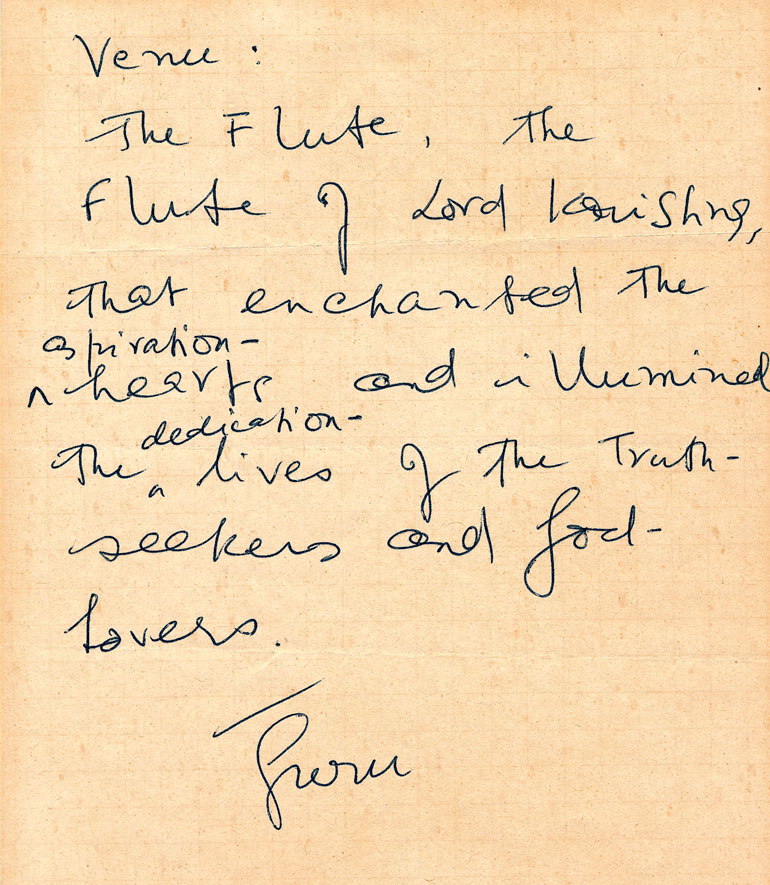 Venu :
The Flute, the
Flute of Lord Krishna,
that enchanted the
aspiration-
^ hearts and illumined
dedication-
the ^ lives of the Truth-
seekers and God-
lovers.
Guru